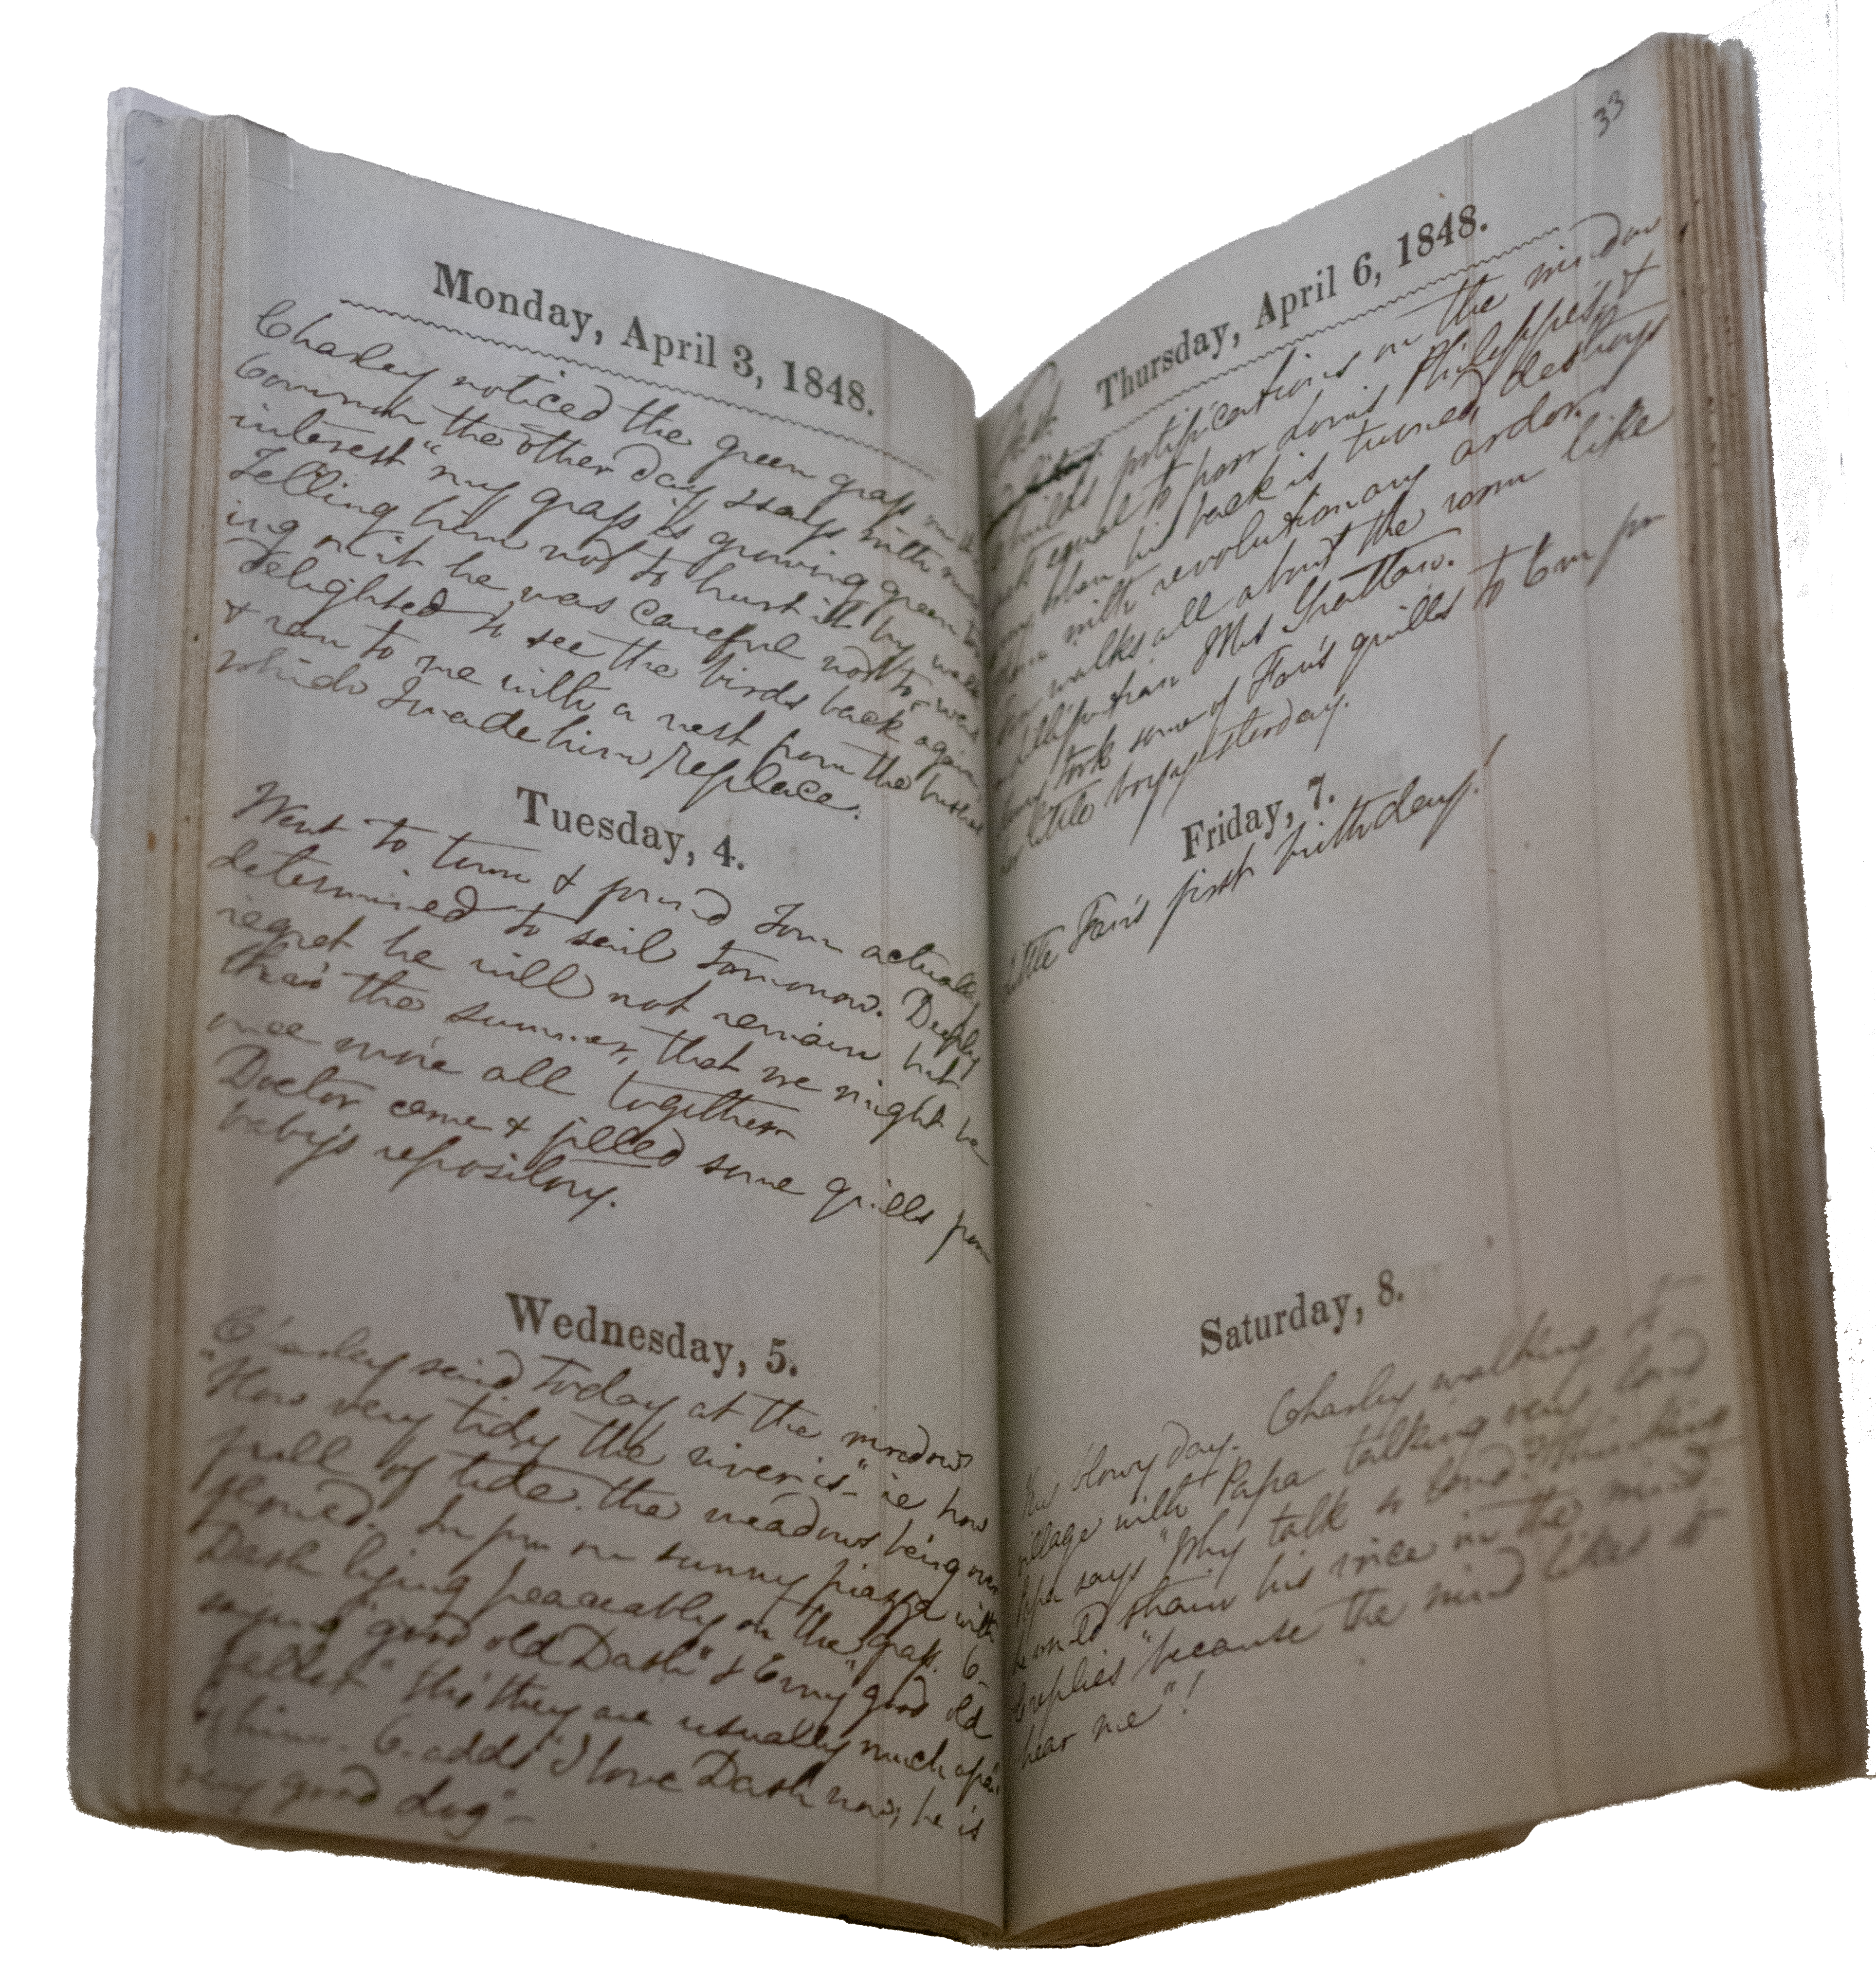 Monday, April 3, 1848.
Charley noticed the green grass
Common the other day & says with
interest "my grass is growing green
Telling him not to hurt it by walk
ing on it he was careful not to
delighted to see the birds back again
& ran to me with a nest from the bushes
which I made him replace.
Tuesday, 4.
Went to town & found Tom actually
determined to sail tomorrow. Deeply
regret he will not remain but
thro' the summer, that we might be
once more all together
Doctor came & filled some quills from
baby's repository.
Wednesday, 5.
Charley said today at the meadow
"How very tidy the river is" ie how
full of tide. the meadows being over
flowed. In fun on sunny piazza with
Dash lying peaceably on the grass. C.
saying "good old Dash" & Erny "good old
feller" tho' they are usually much
of him. C. adds "I love Dash now, he is
very good dog"–
33
Thursday, April 6, 1848.
builds fortifications on the window
equal to poor Louis Philippe's &
when his back is turned, destroys
with revolutionary ardor.
walks all about the room like
Lilliputian Mrs Grattan.
took some of Fan's quills to Em fm
little voyage yesterday.
Friday, 7.
Little Fan's first birthday!
Saturday, 8.
blowy day. Charley walking to
village with Papa talking very loud
Papa says "Why talk so loud? thinking
he would strain his voice in the wind
replies "because the wind likes to
hear me"!